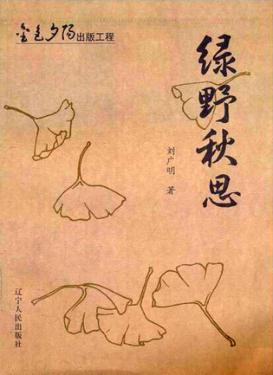 金色夕阳出版工程
绿野秋思
刘广明 著
辽宁人民出版社